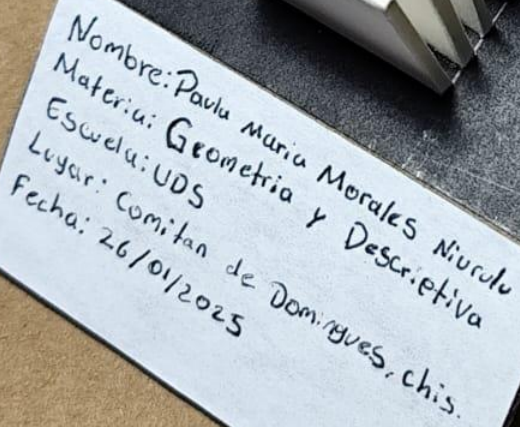 Nombre: Paula Maria Morales Niurulu
Materia: Geometria y Descrietiva
Escuela: UDS
Lugar: Comitan de Domingues, chis.
Fecha: 26/01/2025